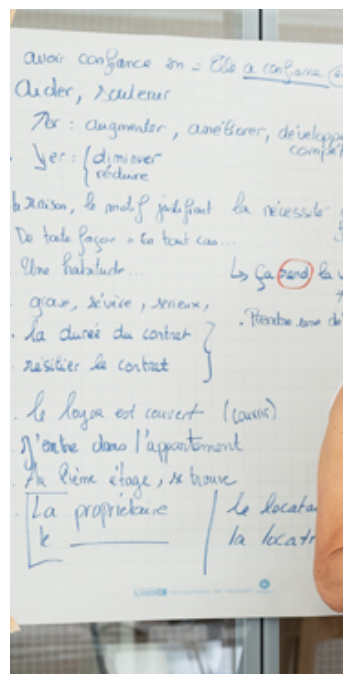 avoir confiance en = Elle a confiance
Aider, soutenir
↗er : augmenter, améliorer, développe
compét
↘er : { diminuer
réduire
la raison, le motif justifiant la nécessité
De toute façon = En tout cas...
Une habitude...
↳ Ça rend la v
grave, sévère, sérieux,
. Prendre une dé
. la durée du contrat
. résilier le contrat
. le loyer est couvert (couvrir)
. J'entre dans l'appartement
. Au 2ième étage, se trouve
La propriétaire
le locata
le
la locatr